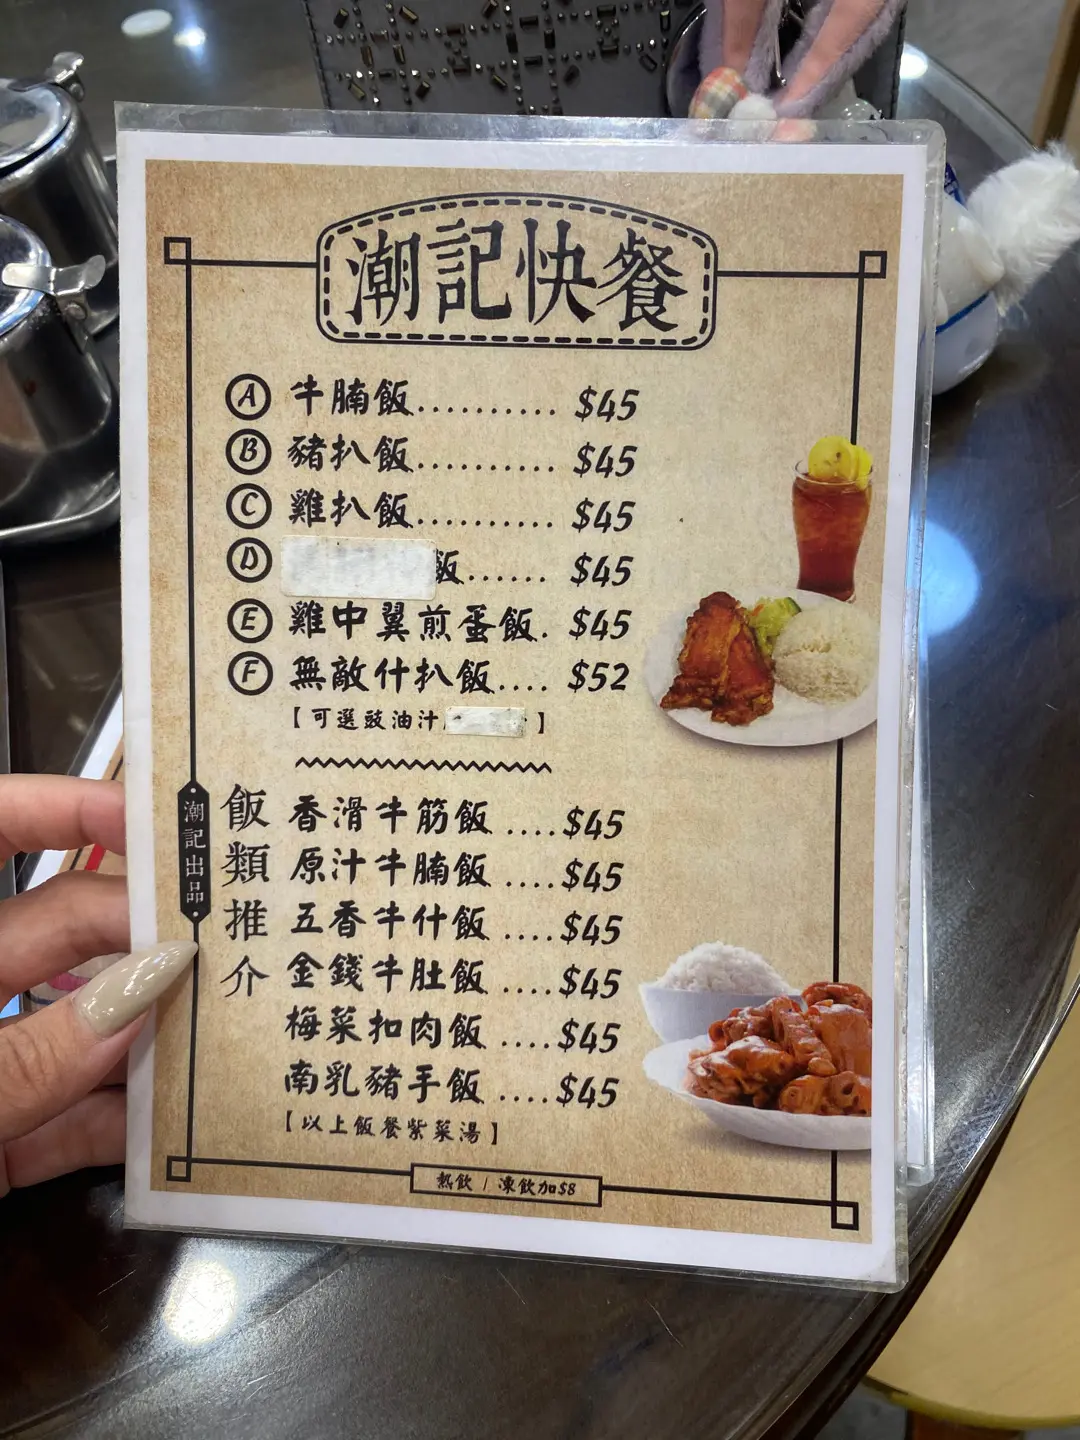 潮記快餐
A 牛腩飯.......... $45
B 豬扒飯.......... $45
C 雞扒飯.......... $45
D 飯...... $45
E 雞中翼煎蛋飯. $45
F 無敵什扒飯.... $52
【可選豉油汁】
潮記出品
飯類推介
香滑牛筋飯 ....$45
原汁牛腩飯 ....$45
五香牛什飯 ....$45
金錢牛肚飯 ....$45
梅菜扣肉飯 ....$45
南乳豬手飯 ....$45
【以上飯餐紫菜湯】
熱飲 / 凍飲加$8